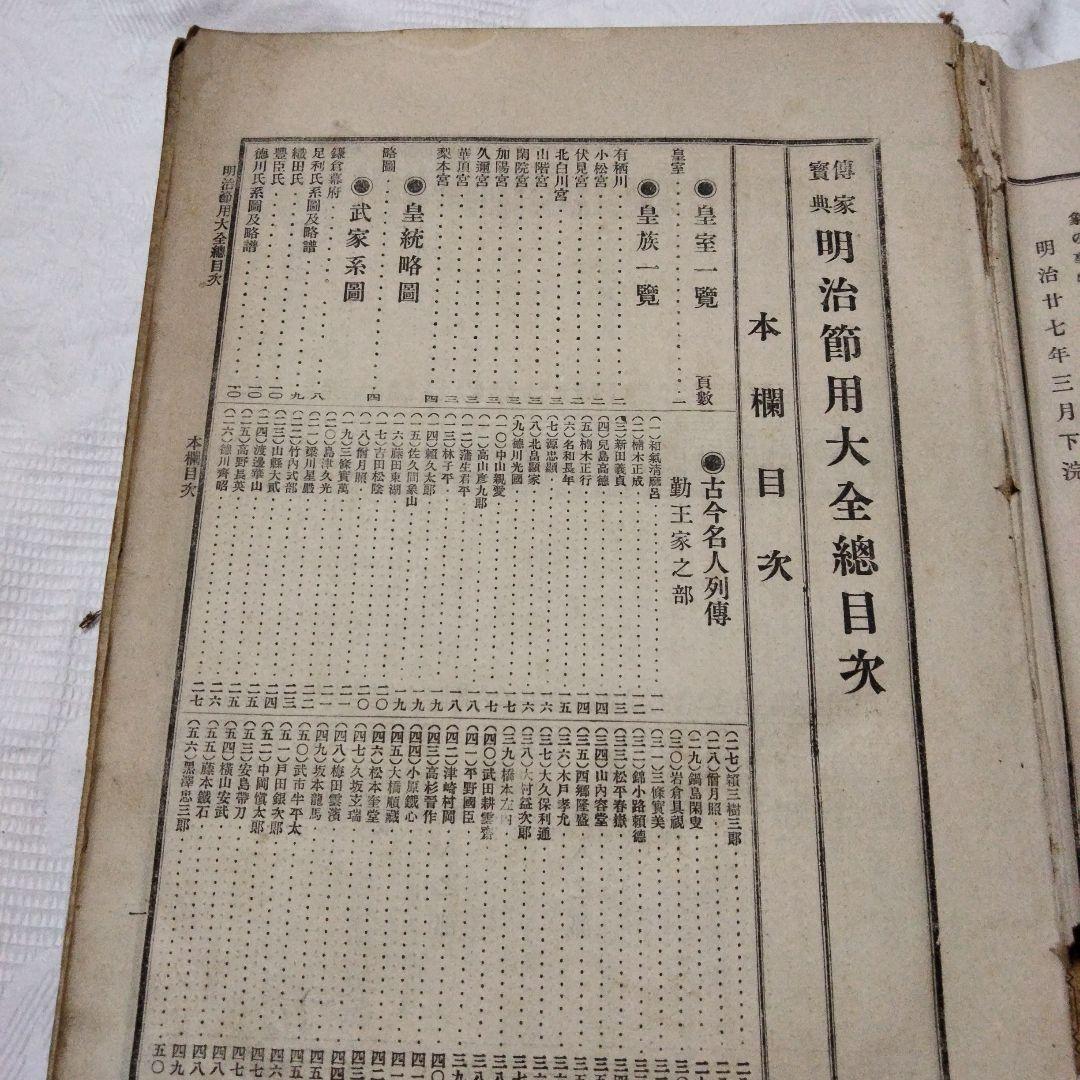 明治廿七年三月下浣
傳家
寳典
明治節用大全總目次
本欄目次
●皇室一覽
頁數
皇室 一
●皇族一覽
有栖川 二
小松宮 二
伏見宮 二
北白川宮 三
山階宮 三
閑院宮 三
加陽宮 三
久邇宮 三
華頂宮 三
梨本宮 四
●皇統略圖
略圖 四
●武家系圖
鎌倉幕府
足利氏系圖及略譜 八
織田氏 九
豐臣氏 一〇
德川氏系圖及略譜 一〇
●古今名人列傳
勤王家之部
(一)和氣清麿呂 一
(二)楠木正成 二
(三)新田義貞 三
(四)兒島高德 四
(五)楠木正行 四
(六)名和長年 五
(七)源忠顯 六
(八)北畠顯家 六
(九)德川光國 七
(一〇)中山親愛 七
(一一)高山彦九郎
(一二)蒲生君平 八
(一三)林子平 八
(一四)賴久太郎 九
(一五)佐久間象山
(一六)藤田東湖
(一七)吉田松陰 二〇
(一八)僧月照
(一九)三條實萬 二一
(二〇)島津久光 二一
(二一)梁川星巖 二二
(二二)竹內式部 二三
(二三)山縣大貳 二四
(二四)渡邊華山 二五
(二五)高野長英 二五
(二六)德川齊昭 二七
(二七)賴三樹三郎
(二八)僧月照
(二九)鍋島閑叟
(三〇)岩倉具視
(三一)三條實美
(三二)錦小路賴德
(三三)松平春嶽
(三四)山內容堂
(三五)西郷隆盛
(三六)木戸孝允
(三七)大久保利通
(三八)大村益次郎
(三九)橋本左內
(四〇)武田耕雲齋
(四一)平野國臣
(四二)津崎村岡
(四三)高杉晋作
(四四)小原鐵心
(四五)大橋順藏
(四六)松本奎堂
(四七)久坂玄瑞
(四八)梅田雲濱
(四九)坂本龍馬
(五〇)武市半平太
(五一)戸田銀次郎
(五二)中岡愼太郎
(五三)安島帶刀
(五四)橫山安武
(五五)藤本鐵石
(五六)黑澤忠三郎 五〇
明治節用大全總目次
本欄目次
一